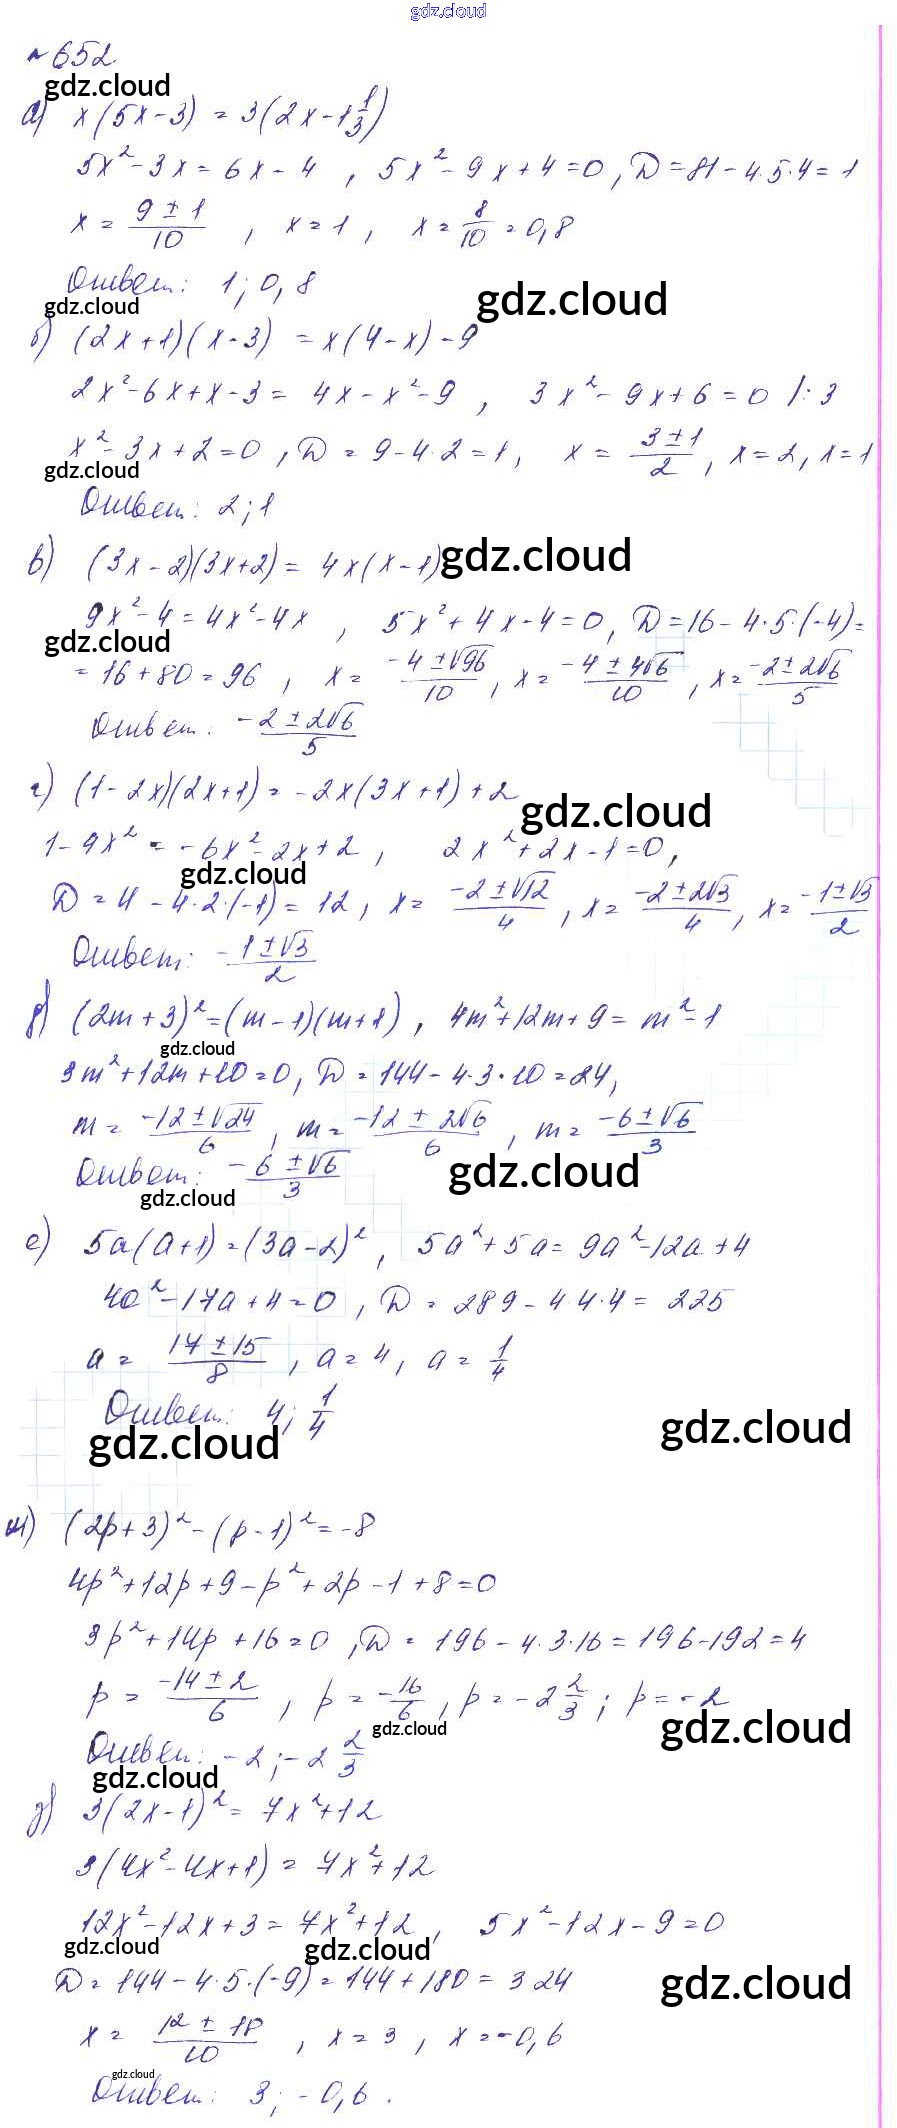 gdz.cloud
№ 652
gdz.cloud
а) x(5x-3) = 3(2x-1 1/3)
5x²-3x=6x-4, 5x²-9x+4=0, D=81-4·5·4=1
x = (9±1)/10, x=1, x = 8/10 = 0,8
Ответ: 1; 0,8
gdz.cloud gdz.cloud
б) (2x+1)(x-3) = x(4-x)-9
2x²-6x+x-3 = 4x-x²-9, 3x²-9x+6=0 /:3
x²-3x+2=0, D = 9-4·2=1, x = (3±1)/2, x=2, x=1
gdz.cloud
Ответ: 2; 1
в) (3x-2)(3x+2) = 4x(x-1) gdz.cloud
9x²-4=4x²-4x, 5x²+4x-4=0, D=16-4·5·(-4)=
gdz.cloud
=16+80=96, x = (-4±√96)/10, x = (-4±4√6)/10, x = (-2±2√6)/5
Ответ: (-2±2√6)/5
г) (1-2x)(2x+1) = -2x(3x+1)+2
gdz.cloud
1-4x² = -6x²-2x+2, 2x²+2x-1=0,
gdz.cloud
D = 4-4·2·(-1)=12, x = (-2±√12)/4, x = (-2±2√3)/4, x = (-1±√3)/2
Ответ: (-1±√3)/2
д) (2m+3)²=(m-1)(m+1), 4m²+12m+9=m²-1
gdz.cloud
3m²+12m+10=0, D = 144-4·3·10=24,
m = (-12±√24)/6, m = (-12±2√6)/6, m = (-6±√6)/3
Ответ: (-6±√6)/3 gdz.cloud
gdz.cloud
е) 5a(a+1)=(3a-2)², 5a²+5a=9a²-12a+4
4a²-17a+4=0, D = 289-4·4·4=225
a = (17±15)/8, a=4, a = 1/4
Ответ: 4; 1/4
gdz.cloud gdz.cloud
ж) (2p+3)²-(p-1)²=-8
4p²+12p+9-p²+2p-1+8=0
3p²+14p+16=0, D = 196-4·3·16=196-192=4
p = (-14±2)/6, p = -16/6, p = -2 2/3; p=-2
gdz.cloud gdz.cloud
Ответ: -2; -2 2/3
gdz.cloud
з) 3(2x-1)²=7x²+12
3(4x²-4x+1)=7x²+12
12x²-12x+3=7x²+12, 5x²-12x-9=0
gdz.cloud gdz.cloud
D = 144-4·5·(-9)=144+180=324
gdz.cloud
x = (12±18)/10, x=3, x=-0,6
gdz.cloud
Ответ: 3; -0,6.